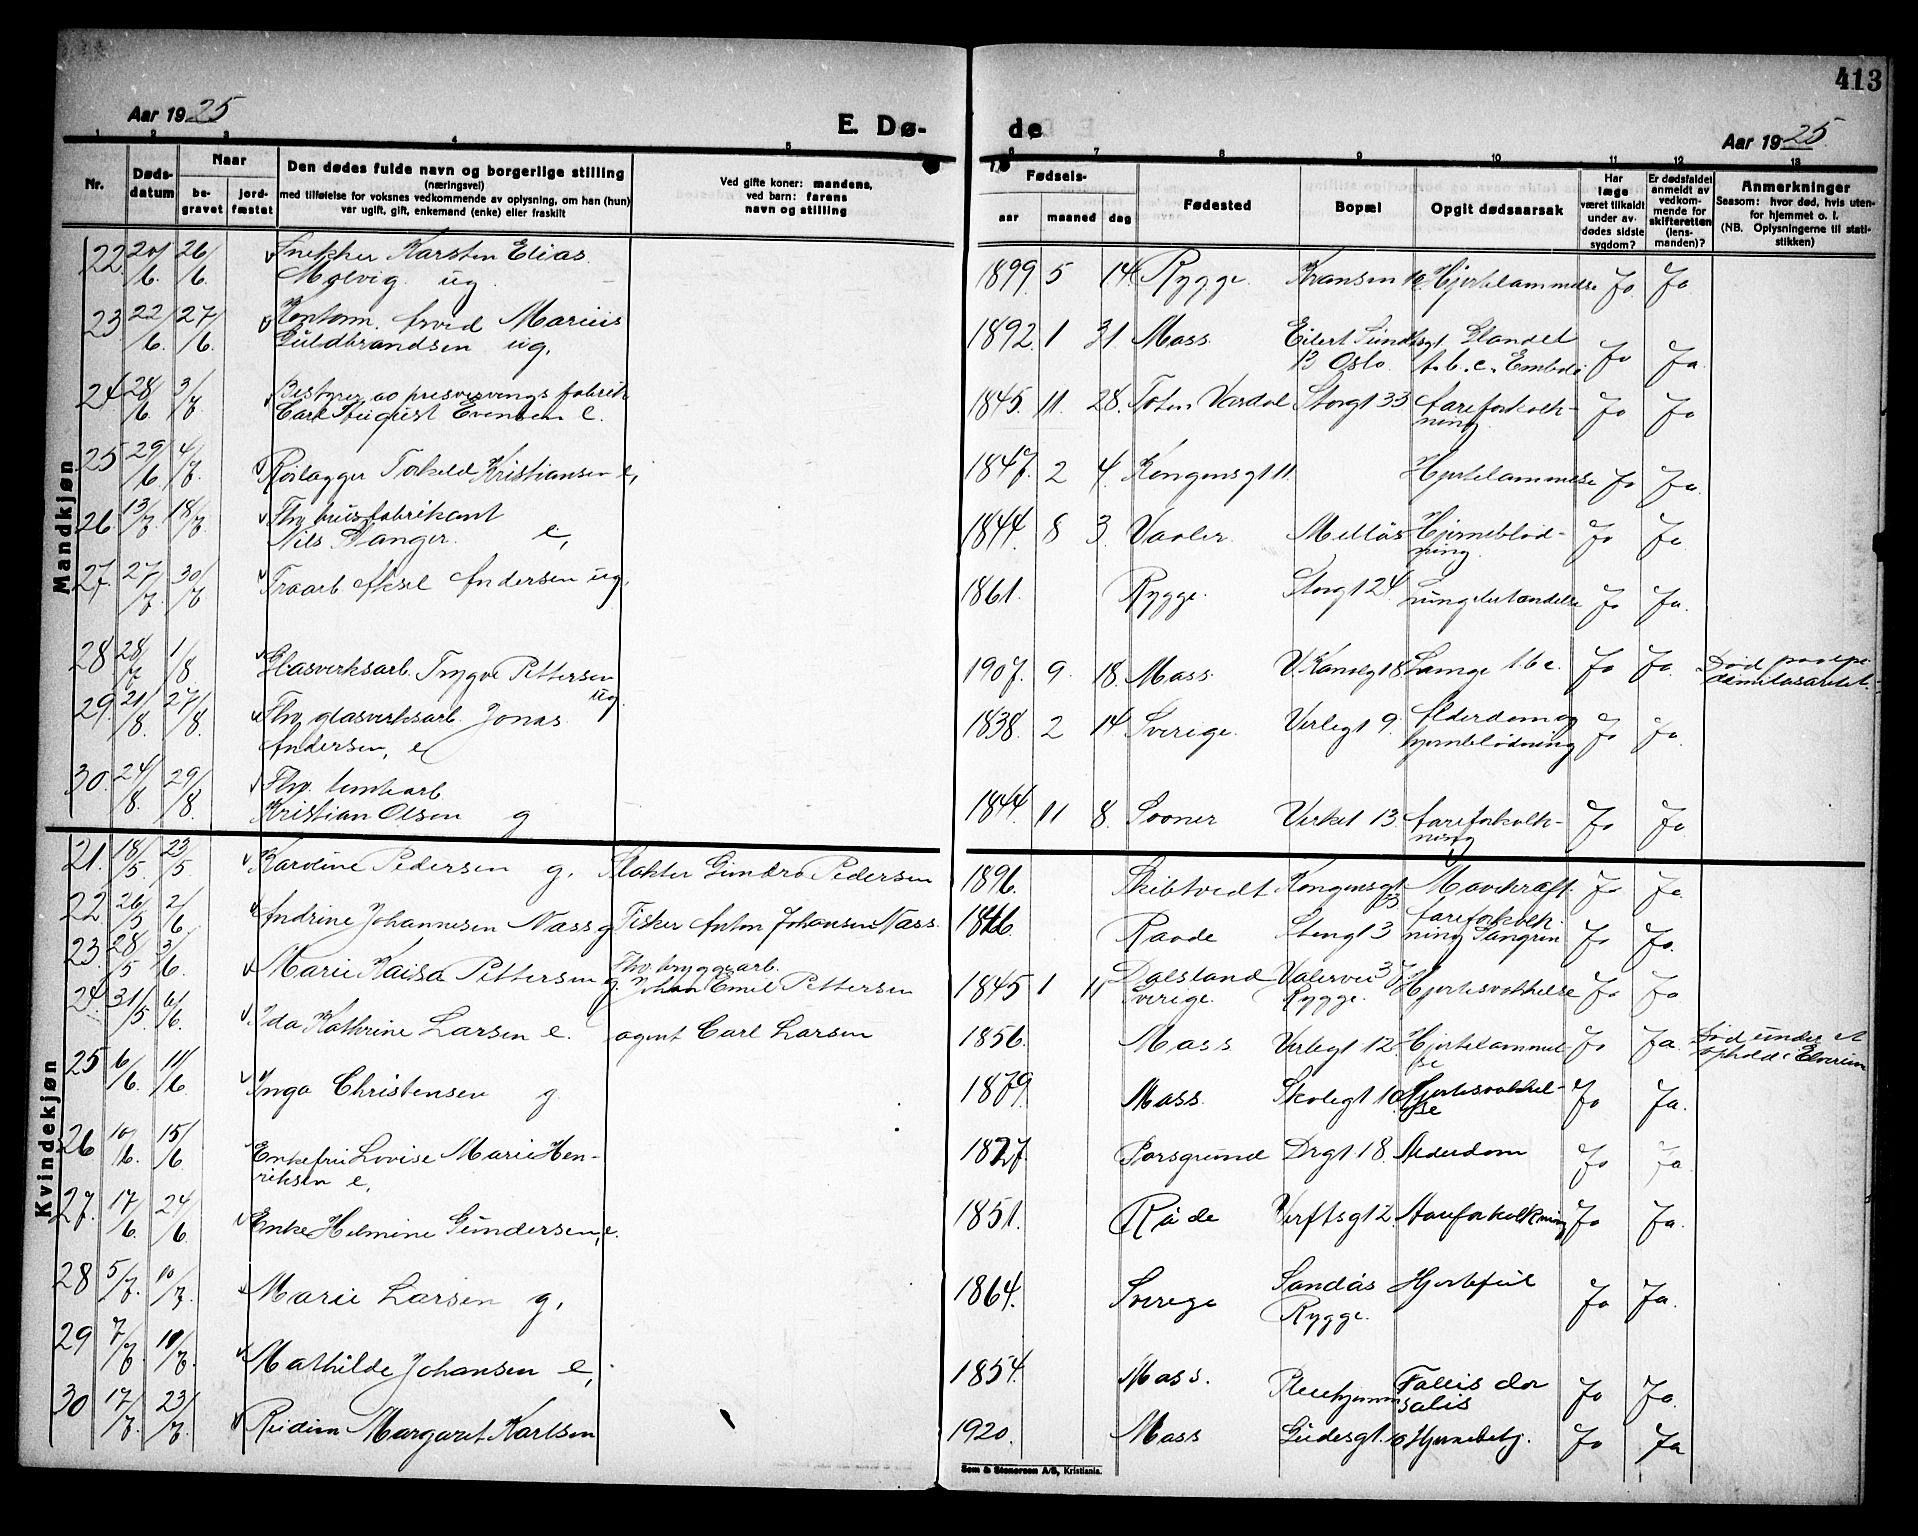 413
Aar 1925
E. Dø-
de
Aar 1925.
1 2 3 4 5 6 7 8 9 10 11 12 13
Nr.
Døds-
datum
Naar
be-
gravet
jord-
fæstet
Den dødes fulde navn og borgerlige stilling
(næringsvei)
med tilføielse for voksnes vedkommende av oplysning, om han (hun)
var ugift, gift, enkemand (enke) eller fraskilt
Ved gifte koner: mandens,
ved barn: farens
navn og stilling
Fødsels-
aar maaned dag
Fødested
Bopæl
Opgit dødsaarsak
Har
læge
været tilkaldt
under av-
dødes sidste
sygdom?
Er dødsfaldet
anmeldt av
vedkom-
mende for
skifteretten
(lens-
manden)?
Anmerkninger
Saasom: hvor død, hvis uten-
for hjemmet o. l.
(NB. Oplysningerne til stati-
stikken)
Mandkjøn
22. 20/6. 26/6. Snekker Karsten Elias
Molvig. ug. 1899 5 14 Rygge. Kransen Hjertelammelse Ja Ja
23 22/6. 27/6. Kontorm. Marius
Guldbrandsen ug. 1892. 1 31. Moss. Eilert Sundtsgt
13 Oslo. Ja Ja.
24 28/6. 3/7 Bestyrer av preserverings fabrik
Carl August Evensen e. 1845. 11. 28. Toten Vardal Storgt 33 Aareforkalk-
ning. Ja Ja
25 29/6. 4/7. Rørlægger Torkeld Kristiansen e, 1847. 2 4. Kongensgt 11. Hjertelammelse Ja Ja.
26. 13/7. 18/7 Fhv. brusfabrikant
Nils Stanger. e, 1844. 8 3. Vaaler. Melløs Hjerneblød-
ning. Ja Ja
27. 27/7 30/7 Aksel Andersen ug. 1861. Rygge. Storgt 24 Lungebetændelse Ja Ja.
28 28/7 1/8 Glasverksarb. Trygve Pettersen
ug. 1907. 9. 18. Moss. V. Kanalgt 8 Ja Ja. Død paa epe-
29. 21/8. 27/8. Fhv. glasverksarb. Jonas
Andersen, e 1838. 2 14 Sverige. Verlegt 9. Alderdom og
hjerneblødning Ja Ja.
30. 24/8. 29/8. Fhv. tomtearb.
Kristian Olsen g 1844. 11 8. Sooner Verket 13. Aareforkalk-
ning Ja Ja
Kvindekjøn
21. 18/5. 23/5 Karoline Pedersen g. Slakter Gundro Pedersen 1896. Skibtvedt Kongensgt
33 Mavekræft. Ja Ja
22 26/5 2/6 Andrine Johannesen Næss g Fisker Anton Johansen Næss. 1846. Raade Stengt 3 Aareforkalk-
ning Ja Ja.
23. 28/5 3/6. Marie Kaisa Pettersen g. Fhv. bryggearb.
Johan Emil Pettersen 1845 1 11 Dalsland
Sverige. Valervei 37
Rygge. Hjertesvækkelse Ja Ja
24. 31/5. 6/6. Ida Kathrine Larsen e. agent Carl Larsen 1856. Moss Verlegt 12. Hjertelammel-
se Ja Ja. Død under et
ophold i Elverum
25 6/6. 11/6 Inga Christensen g. 1879. Moss. Skolegt 10. Hjertesvækkel-
se Ja Ja.
26 10/6. 15/6 Enkefru Lovise Marie Hen-
riksen e, 1827. Porsgrund Drgt. 18. Alderdom Ja Ja.
27. 17/6. 24/6. Enke Helmine Gundersen, e. 1851. Råde Verftsgt 2. Aareforkalkning Ja Ja.
28 5/7. 10/7. Marie Larsen g. 1864. Sverige Sandås
Rygge. Hjertefeil Ja Ja.
29 7/7. 10/7. Mathilde Johansen e, 1854. Moss. Pleiehjemmet Ja Ja.
30 17/7. 23/7. Reidun Margaret Karlsen 1920. Moss Gudesgt. 10 Hjernebetj. Ja Ja
Sem & Stenersen A/S, Kristiania.